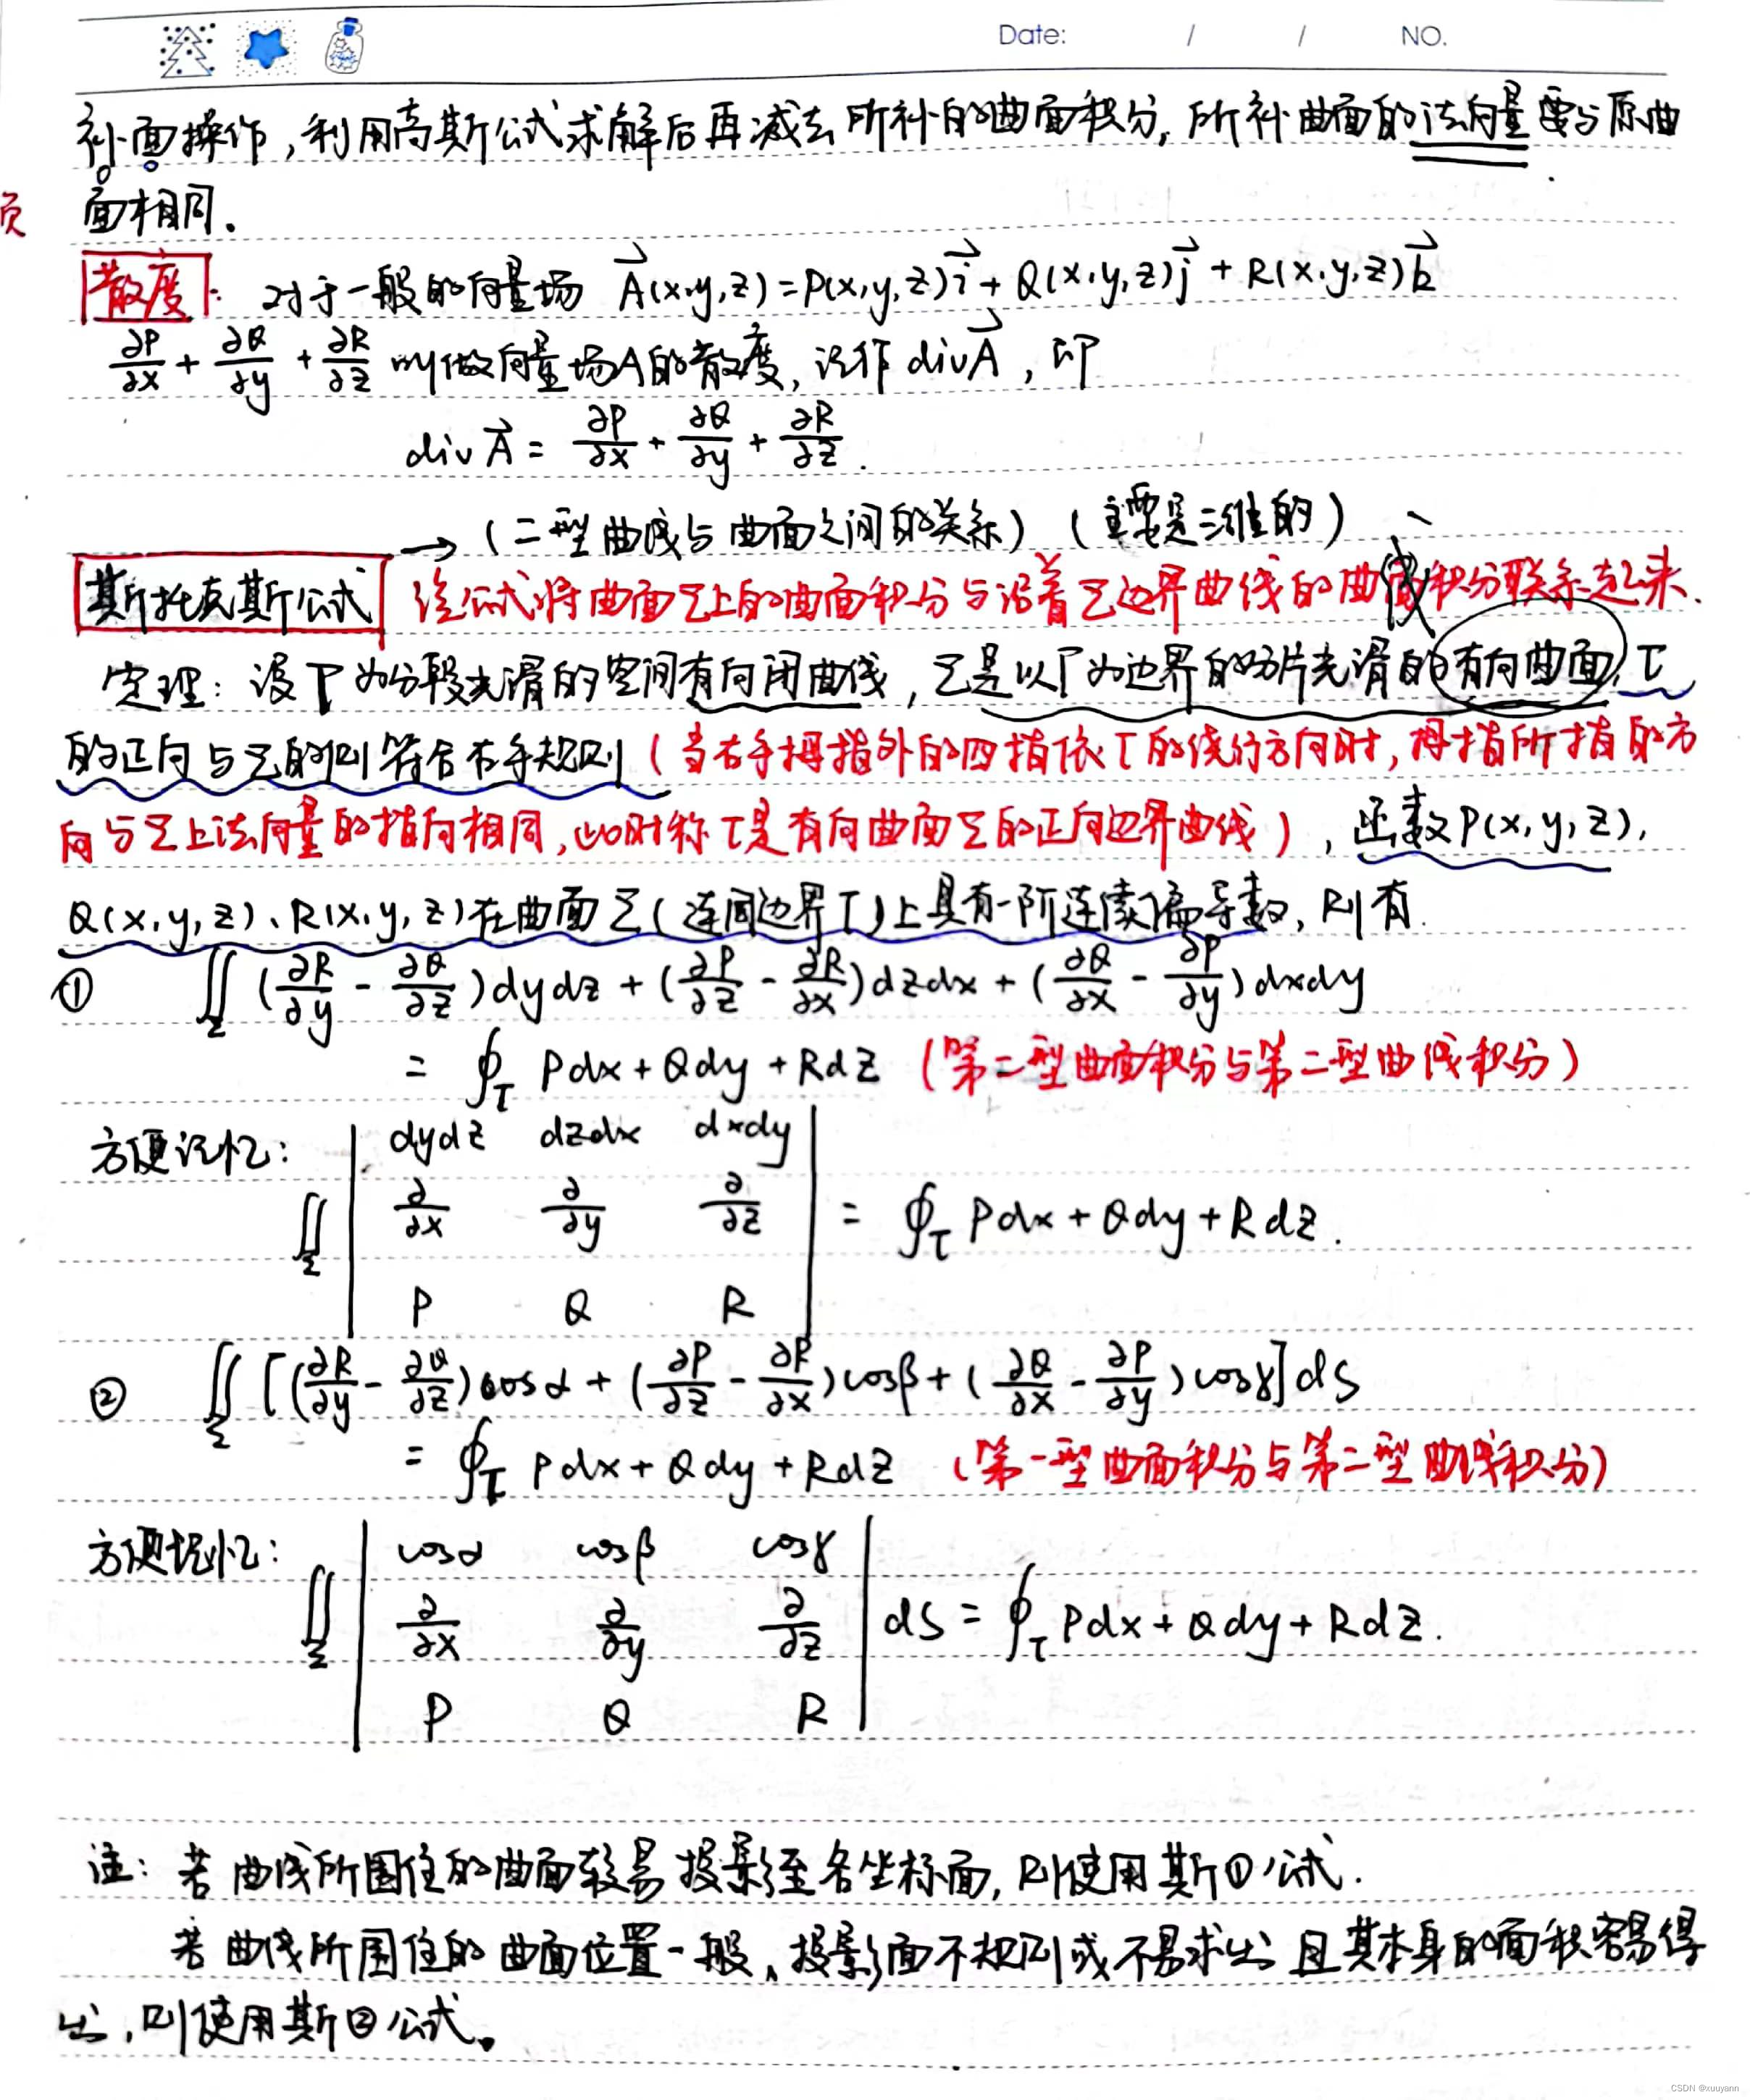 Date: / / NO.
补面操作，利用高斯公式求解后再减去所补的曲面积分，所补曲面的法向量要与原曲
面相同．
散度：对于一般的向量场 $\vec{A}(x,y,z)=P(x,y,z)\vec{i}+Q(x,y,z)\vec{j}+R(x,y,z)\vec{k}$
$\frac{\partial P}{\partial x}+\frac{\partial Q}{\partial y}+\frac{\partial R}{\partial z}$ 叫做向量场A的散度，记作 $div\vec{A}$，即
$div\vec{A}=\frac{\partial P}{\partial x}+\frac{\partial Q}{\partial y}+\frac{\partial R}{\partial z}$.
→（二型曲线与曲面之间的关系）（主要是三维的）
斯托克斯公式 该公式将曲面Σ上的曲面积分与沿着Σ边界曲线的曲线积分联系起来．
定理：设Γ为分段光滑的空间有向闭曲线，Σ是以Γ为边界的分片光滑的有向曲面，Γ
的正向与Σ的侧符合右手规则（当右手拇指外的四指依Γ的绕行方向时，拇指所指的方
向与Σ上法向量的指向相同，此时称Γ是有向曲面Σ的正向边界曲线），函数P(x,y,z)，
Q(x,y,z)、R(x,y,z)在曲面Σ(连同边界Γ)上具有一阶连续偏导数，则有
① $\iint_{Σ}(\frac{\partial R}{\partial y}-\frac{\partial Q}{\partial z})dydz+(\frac{\partial P}{\partial z}-\frac{\partial R}{\partial x})dzdx+(\frac{\partial Q}{\partial x}-\frac{\partial P}{\partial y})dxdy$
$=\oint_{Γ}Pdx+Qdy+Rdz$（第二型曲面积分与第二型曲线积分）
方便记忆：
$\iint_{Σ}\begin{vmatrix}dydz & dzdx & dxdy\\ \frac{\partial}{\partial x} & \frac{\partial}{\partial y} & \frac{\partial}{\partial z}\\ P & Q & R\end{vmatrix}=\oint_{Γ}Pdx+Qdy+Rdz.$
② $\iint_{Σ}[(\frac{\partial R}{\partial y}-\frac{\partial Q}{\partial z})cosα+(\frac{\partial P}{\partial z}-\frac{\partial R}{\partial x})cosβ+(\frac{\partial Q}{\partial x}-\frac{\partial P}{\partial y})cosγ]dS$
$=\oint_{Γ}Pdx+Qdy+Rdz$（第一型曲面积分与第二型曲线积分）
方便记忆：
$\iint_{Σ}\begin{vmatrix}cosα & cosβ & cosγ\\ \frac{\partial}{\partial x} & \frac{\partial}{\partial y} & \frac{\partial}{\partial z}\\ P & Q & R\end{vmatrix}dS=\oint_{Γ}Pdx+Qdy+Rdz.$
注：若曲线所围住的曲面较易投影至各坐标面，则使用斯①公式．
若曲线所围住的曲面位置一般、投影面不规则或不易求出且其本身的面积容易得
出，则使用斯②公式。
CSDN @xuuyann